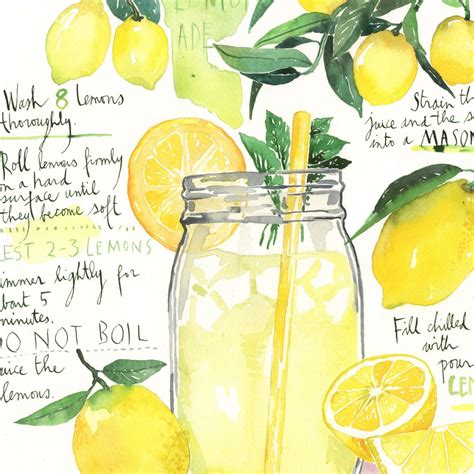 LEMON
ADE
Wash 8 Lemons
thoroughly.
Roll lemons firmly
on a hard
surface until
they become soft
EST 2-3 LEMONS
immer lightly for
bout 5
minutes.
O NOT BOIL
uice the
lemons.
Strain th
juice and the s
into a MASON
Fill chilled
with
pour
LEM